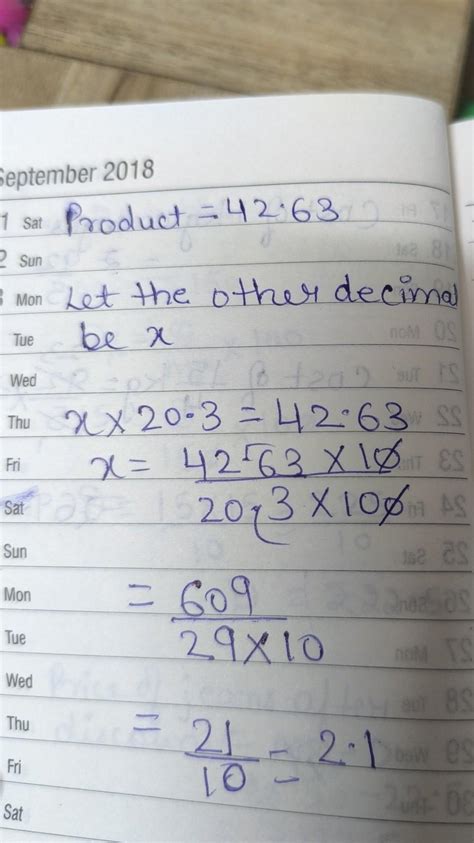 September 2018
1 Sat Product = 42.63
2 Sun
3 Mon Let the other decimal
Tue be x
Wed
Thu x × 20.3 = 42.63
Fri x = 4263 × 10
Sat 203 × 100
Sun
Mon = 609
Tue 29 × 10
Wed
Thu = 21
Fri 10 = 2.1
Sat